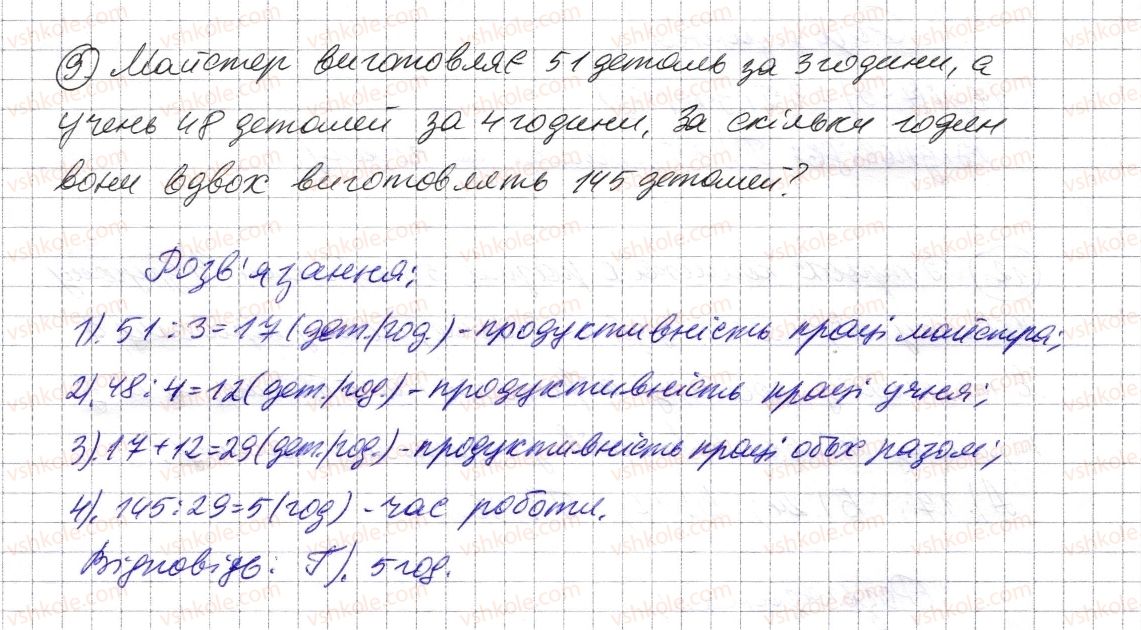 9) Майстер виготовляє 51 деталь за 3 години, а
учень 48 деталей за 4 години. За скільки годин
вони вдвох виготовлять 145 деталей?
Розв'язання:
1). 51 : 3 = 17 (дет./год.) - продуктивність праці майстра;
2). 48 : 4 = 12 (дет./год.) - продуктивність праці учня;
3). 17 + 12 = 29 (дет./год.) - продуктивність праці обох разом;
4). 145 : 29 = 5 (год) - час роботи.
Відповідь: Г). 5 год.